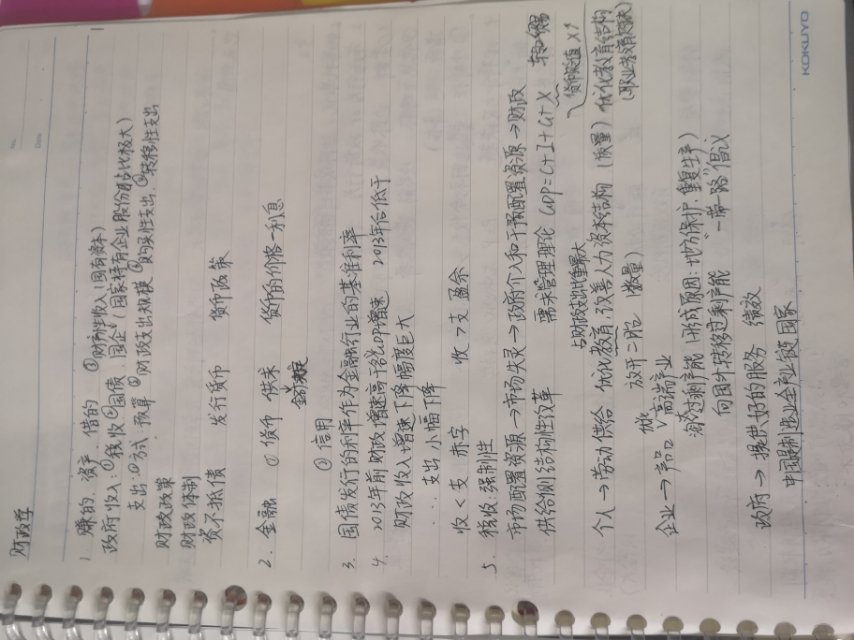 No.
Date
财政学
1. 赚的 资产 借的 ③财产性收入(国有资本)
政府收入:①税收②国债 国企(国家持有企业股份占比极大)
支出:①方式 预算 ②财政支出规模 ③购买性支出 ④转移性支出
财政政策
财政体制
资不抵债 发行货币 货币政策
2. 金融 ①货币 供求 货币的价格—利息
②信用
3. 国债发行的利率作为金融行业的基准利率
4. 2013年前财政增速高于GDP增速 2013年后低于
财政收入增速下降幅度巨大
支出 小幅下降
收<支 赤字 收>支 盈余
5. 税收:强制性
市场配置资源→市场失灵→政府介入和干预配置资源→财政
供给侧结构性改革 需求管理理论 GDP=C+I+G+X
货币贬值 X↑
占财政支出比重最大
个人→劳动供给 优化教育,改善人力资本结构(质量)优化教育结构
(职业教育)
放开二胎(数量)
企业→产品 高端产业
淘汰过剩产能(形成原因:地方保护,重复生产)
向国外转移过剩产能 "一带一路"倡议
政府→提供好的服务 绩效
中国是制造业全产业链国家
KOKUYO